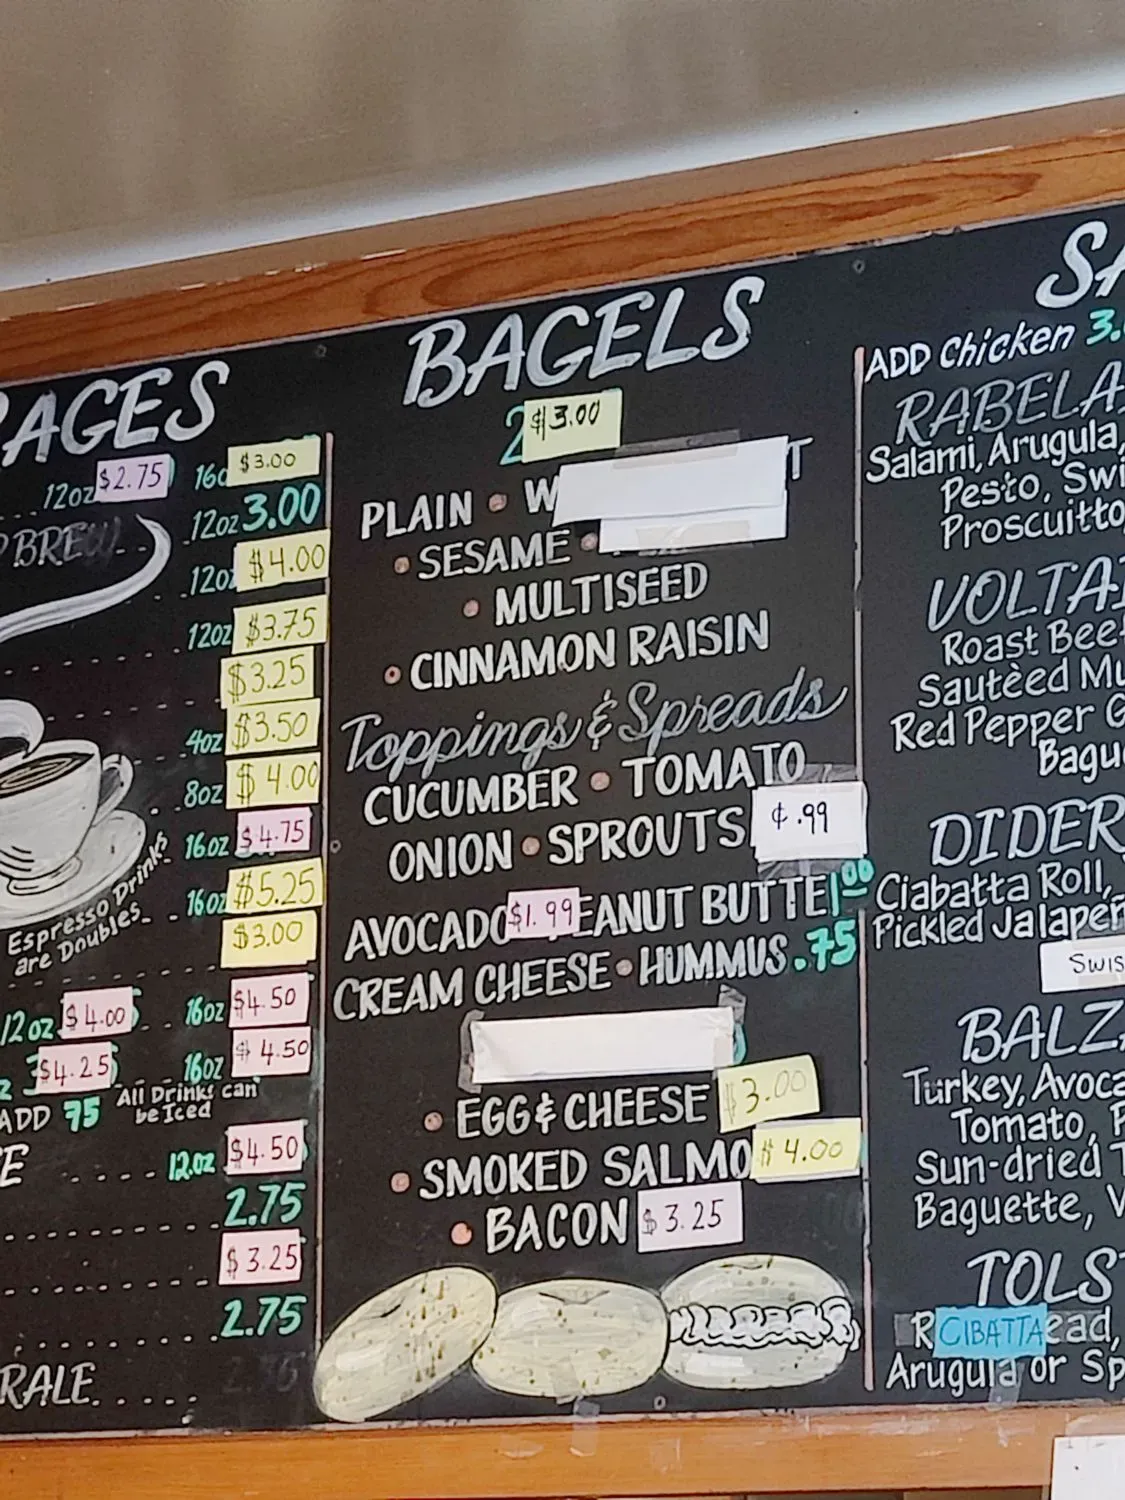 BAGELS
$3.00
PLAIN • W
• SESAME •
• MULTISEED
• CINNAMON RAISIN
Toppings & Spreads
CUCUMBER • TOMATO
ONION • SPROUTS ¢.99
AVOCADO $1.99 EANUT BUTTE 1.00
CREAM CHEESE • HUMMUS .75
• EGG & CHEESE $3.00
• SMOKED SALMO $4.00
• BACON $3.25
AGES
12oz $2.75 16o $3.00
BREW 12oz 3.00
12oz $4.00
12oz $3.75
$3.25
4oz $3.50
8oz $4.00
16oz $4.75
16oz $5.25
$3.00
Espresso Drinks
are Doubles
12oz $4.00 16oz $4.50
$4.25 16oz $4.50
ADD 75 All Drinks can
be Iced
E 12oz $4.50
2.75
$3.25
2.75
RALE
SA
ADD Chicken 3.
RABELA
Salami, Arugula,
Pesto, Swi
Proscuitto
VOLTAI
Roast Beef
Sautèed Mu
Red Pepper G
Bagu
DIDER
Ciabatta Roll,
Pickled Jalapeñ
SWIS
BALZ
Turkey, Avoca
Tomato, P
Sun-dried T
Baguette, V
TOLST
R CIBATTA ead,
Arugula or Sp